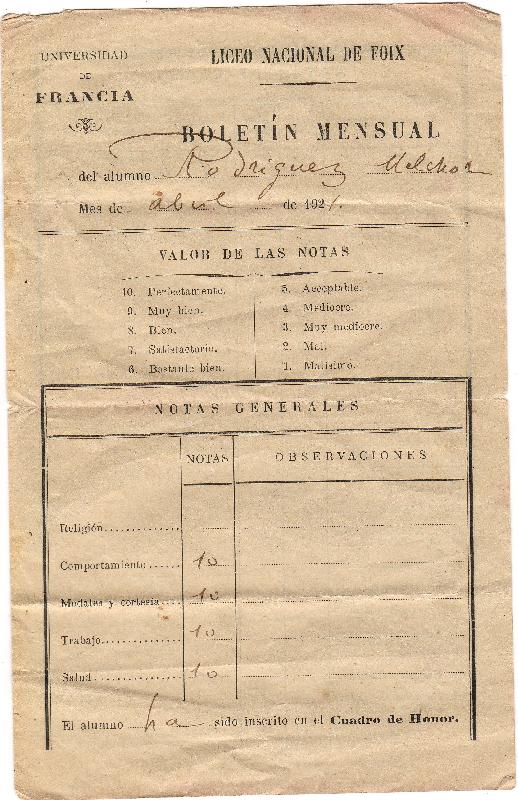 UNIVERSIDAD
DE
FRANCIA
LICEO NACIONAL DE FOIX
BOLETÍN MENSUAL
del alumno Rodriguez Melchor
Mes de abril de 1921.
VALOR DE LAS NOTAS
10. Perfectamente.
9. Muy bien.
8. Bien.
7. Satisfactorio.
6. Bastante bien.
5. Acceptable.
4. Mediocre.
3. Muy mediocre.
2. Mal.
1. Malísimo.
NOTAS GENERALES
NOTAS OBSERVACIONES
Religión
Comportamiento 10
Modales y cortesía 10
Trabajo 10
Salud 10
El alumno ha sido inscrito en el Cuadro de Honor.